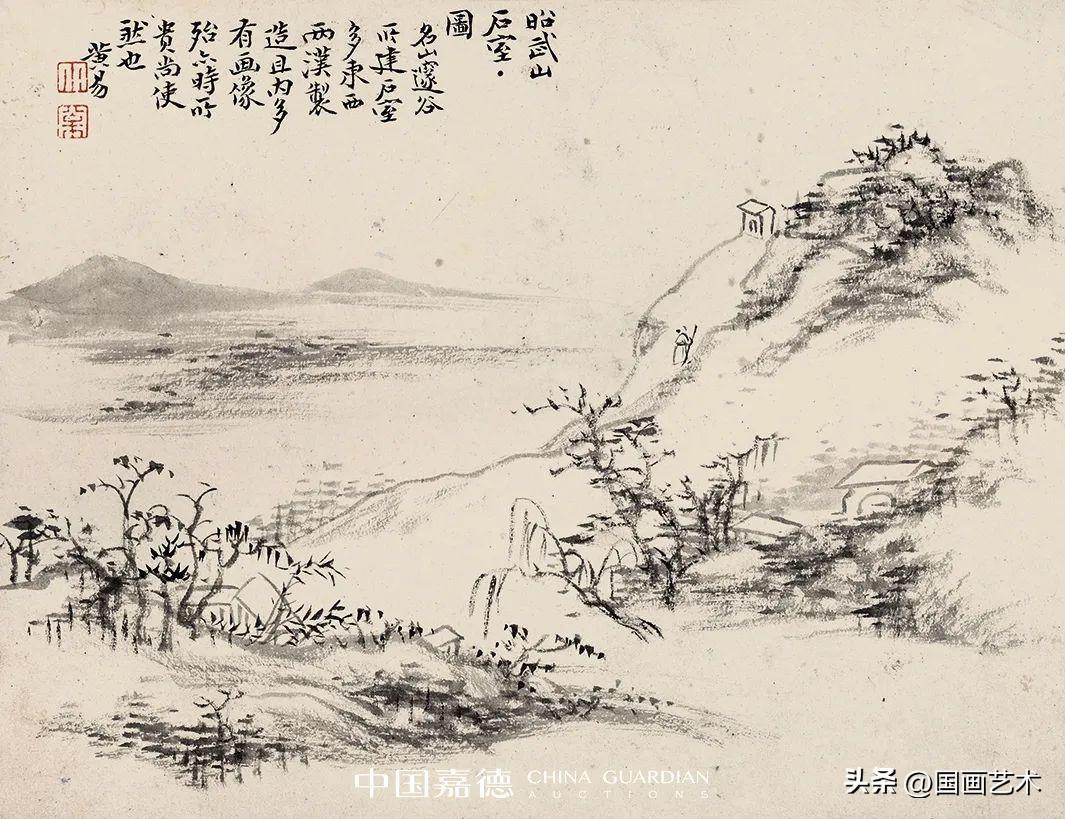 昭武山
石室
圖
名山邃谷
所建石室
多東西
兩漢製
造且内多
有画像
殆亦時所
贵尚使
然也
黄易
中国嘉德 CHINA GUARDIAN
AUCTIONS
头条 @国画艺术